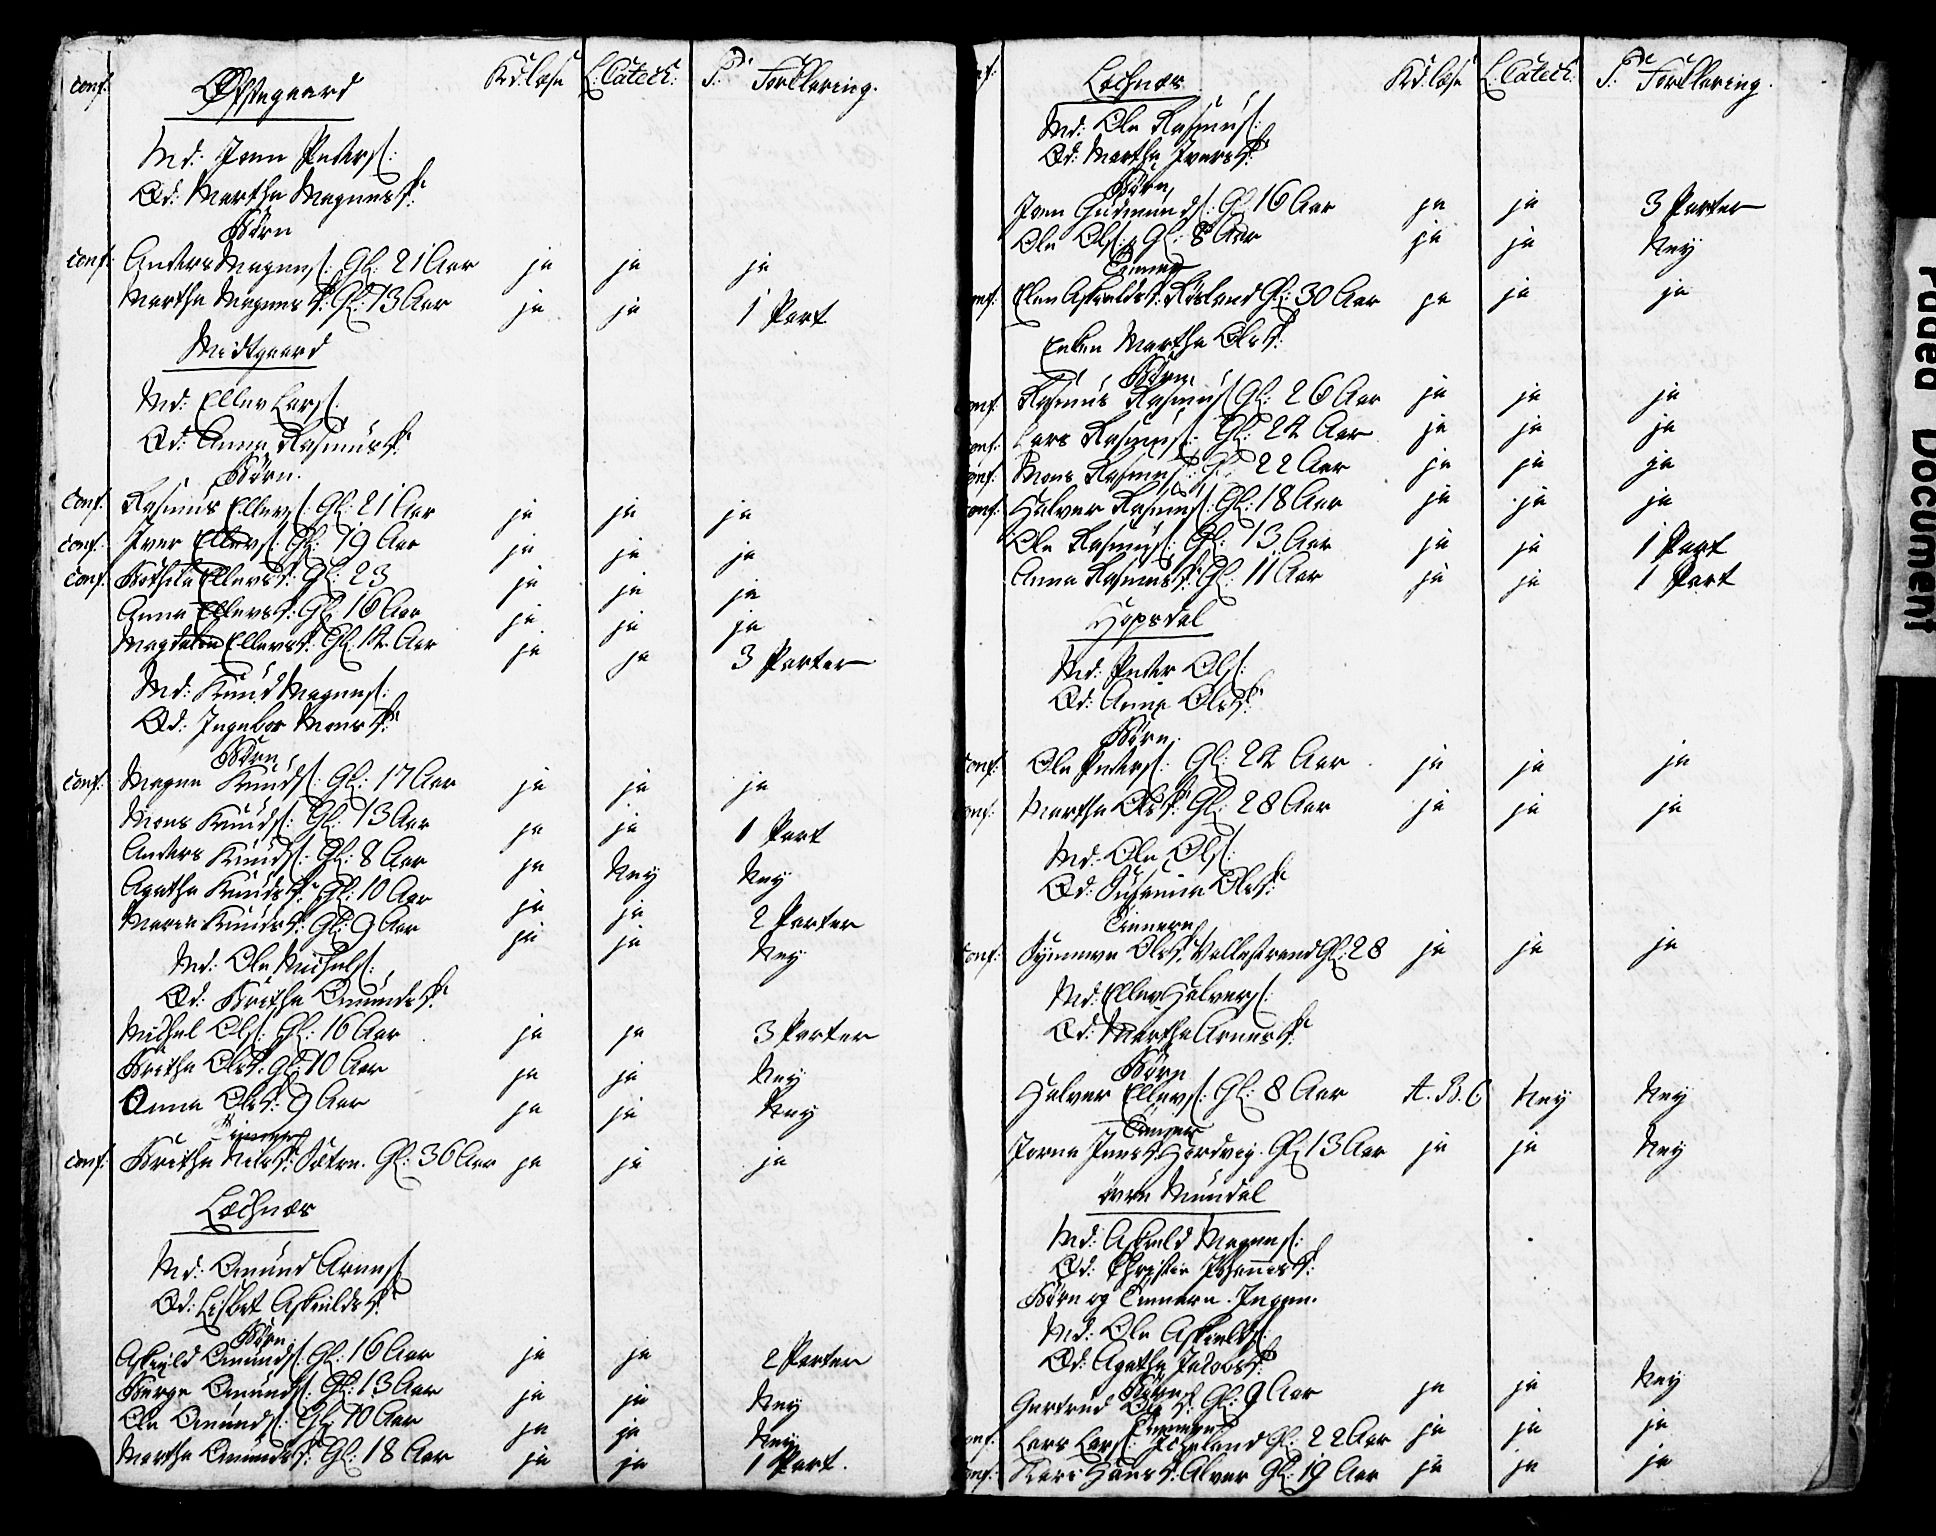 conf: Østegaard Kd: læse L: Catech: P: Forklaring.
Md: Iven Peders:
Qd: Martha Magnesd:
Børn
conf: Anders Magnes: Gl: 21 Aar ja ja ja
Martha Magnesd: Gl: 13 Aar ja ja 1 Part
Midtgaard
Md: Ellev Lars:
Qd: Anna Rasmusd:
Børn.
conf: Rasmus Ellevs: Gl: 21 Aar ja ja ja
conf: Iver Ellevs: Gl: 19 Aar ja ja ja
conf: Bothilla Ellevsd: Gl: 23 ja ja ja
Anna Ellevsd: Gl: 16 Aar ja ja ja
Magdalena Ellevsd: Gl: 12 Aar ja ja 3 Parter
Md: Knud Magnes:
Qd: Ingebor Monsd:
Børn
conf: Magne Knuds: Gl: 17 Aar ja ja ja
Mons Knuds: Gl: 13 Aar ja ja 1 Part
Anders Knuds: Gl: 8 Aar ja Ney Ney
Agatha Knudsd: Gl: 10 Aar ja ja 2 Parter
Maria Knudsd: Gl: 9 Aar ja ja Ney
Md: Ole Michels:
Qd: Britha Omundsd:
Michel Ols: Gl: 16 Aar ja ja 3 Parter
Britha Olsd: Gl: 10 Aar ja ja Ney
Anna Olsd: 9 Aar ja ja Ney
conf: Britha Nilsd: Sætre. Gl: 36 Aar ja ja ja
Lechnæs
Md: Omund Arnes:
Qd: Lisbet Askieldsd:
Børn
Askield Omunds: Gl: 16 Aar ja ja 2 Parter
Børge Omunds: Gl: 13 Aar ja ja Ney
Ole Omunds: Gl: 10 Aar ja ja Ney
Martha Omundsd: Gl: 18 Aar ja ja 1 Part.
Lechnæs Kd: læse L: Catech: P: Forklaring.
Md: Ole Rasmus:
Qd: Martha Iversd:
Børn
Iven Gudmunds: Gl: 16 Aar ja ja 3 Parter
Ole Ols: Gl: 8 Aar ja ja Ney
conf: Elen Askieldsd: Røsland Gl: 30 Aar ja ja ja
Enken Martha Olsd:
Børn
conf: Rasmus Rasmus: Gl: 26 Aar ja ja ja
conf: Lars Rasmus: Gl: 24 Aar ja ja ja
conf: Mons Rasmus: Gl: 22 Aar ja ja ja
conf: Halver Rasmus: Gl: 18 Aar ja ja ja
Ole Rasmus: Gl: 13 Aar ja ja 1 Part
Anna Rasmusd: Gl: 11 Aar ja ja 1 Part
Hopsdal
Md: Peder Ols:
Qd: Anna Olsd:
Børn
conf: Ole Peders: Gl: 24 Aar ja ja ja
conf: Martha Olsd: Gl: 28 Aar ja ja ja
Md: Ole Ols:
Qd: Susanna Olsd:
Tienere
conf: Synneve Olsd: Vallestrand Gl: 28 ja ja ja
Md: Ellev Halvers:
Qd: Martha Arnesd:
Børn
Halver Ellevs: Gl: 8 Aar A. B. C Ney Ney
Tiener
Hordvig. Gl: 13 Aar ja ja Ney
øvre Mundal
Md: Askield Magnes:
Qd: Christie Johannesd:
Børn og Tienere. Ingen.
Md: Ole Askields:
Qd: Agatha Jacobsd:
Børn
Gertrud Olsd: Gl: 9 Aar ja ja Ney
Tienere
conf: Lars Lars: Gl: 22 Aar ja ja ja
conf: Kari Hansd: Alver Gl: 19 Aar ja ja ja
Faded Document